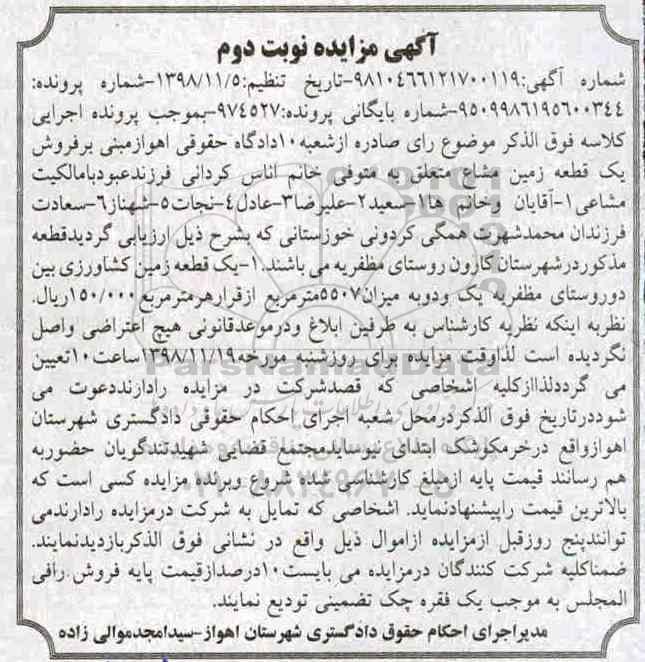 آگهی مزایده نوبت دوم
شماره آگهی:۹۸۱۰۴۶۶۱۲۱۷۰۰۱۱۹-تاریخ تنظیم:۱۳۹۸/۱۱/۵-شماره پرونده:
۹۵۰۹۹۸۶۱۹۵۶۰۰۳۴۴-شماره بایگانی پرونده:۹۷۴۵۲۷-بموجب پرونده اجرایی
کلاسه فوق الذکر موضوع رای صادره ازشعبه۱۰دادگاه حقوقی اهوازمبنی برفروش
یک قطعه زمین مشاع متعلق به متوفی خانم اناس کردانی فرزندعبودبامالکیت
مشاعی۱-آقایان وخانم ها۱-سعید۲-علیرضا۳-عادل۴-نجات۵-شهناز۶-سعادت
فرزندان محمدشهرت همگی کردونی خوزستانی که بشرح ذیل ارزیابی گردیدقطعه
مذکوردرشهرستان کارون روستای مظفریه می باشند.۱-یک قطعه زمین کشاورزی بین
دوروستای مظفریه یک ودوبه میزان۵۵۰۷مترمربع ازقرارهرمترمربع۱۵۰/۰۰۰ریال.
نظربه اینکه نظریه کارشناس به طرفین ابلاغ ودرموعدقانونی هیچ اعتراضی واصل
نگردیده است لذاوقت مزایده برای روزشنبه مورخه۱۳۹۸/۱۱/۱۹ساعت۱۰تعیین
می گرددلذاازکلیه اشخاصی که قصدشرکت در مزایده رادارنددعوت می
شوددرتاریخ فوق الذکردرمحل شعبه اجرای احکام حقوقی دادگستری شهرستان
اهوازواقع درخرمکوشک ابتدای نیوسایدمجتمع قضایی شهیدتندگویان حضوربه
هم رسانند قیمت پایه ازمبلغ کارشناسی شده شروع وبرنده مزایده کسی است که
بالاترین قیمت راپیشنهادنماید. اشخاصی که تمایل به شرکت درمزایده رادارندمی
توانندپنج روزقبل ازمزایده ازاموال ذیل واقع در نشانی فوق الذکربازدیدنمایند.
ضمناکلیه شرکت کنندگان درمزایده می بایست۱۰درصدازقیمت پایه فروش رافی
المجلس به موجب یک فقره چک تضمینی تودیع نمایند.
مدیراجرای احکام حقوق دادگستری شهرستان اهواز-سیدامجدموالی زاده
ParsNamadData